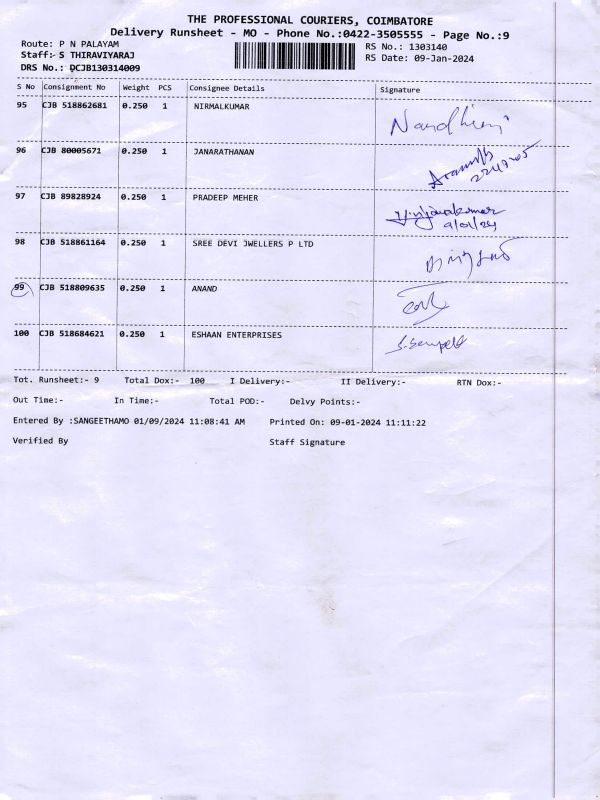 THE PROFESSIONAL COURIERS, COIMBATORE
Delivery Runsheet - MO - Phone No.:0422-3505555 - Page No.:9
Route: P N PALAYAM
RS No.: 1303140
Staff:- S THIRAVIYARAJ
RS Date: 09-Jan-2024
DRS No.: DCJB130314009
S No Consignment No Weight PCS Consignee Details Signature
95 CJB 518862681 0.250 1 NIRMALKUMAR
96 CJB 80005671 0.250 1 JANARATHANAN
97 CJB 89828924 0.250 1 PRADEEP MEHER
9/01/24
98 CJB 518861164 0.250 1 SREE DEVI JWELLERS P LTD
99 CJB 518809635 0.250 1 ANAND
100 CJB 518684621 0.250 1 ESHAAN ENTERPRISES
Tot. Runsheet:- 9 Total Dox:- 100 I Delivery:- II Delivery:- RTN Dox:-
Out Time:- In Time:- Total POD:- Delvy Points:-
Entered By :SANGEETHAMO 01/09/2024 11:08:41 AM Printed On: 09-01-2024 11:11:22
Verified By Staff Signature